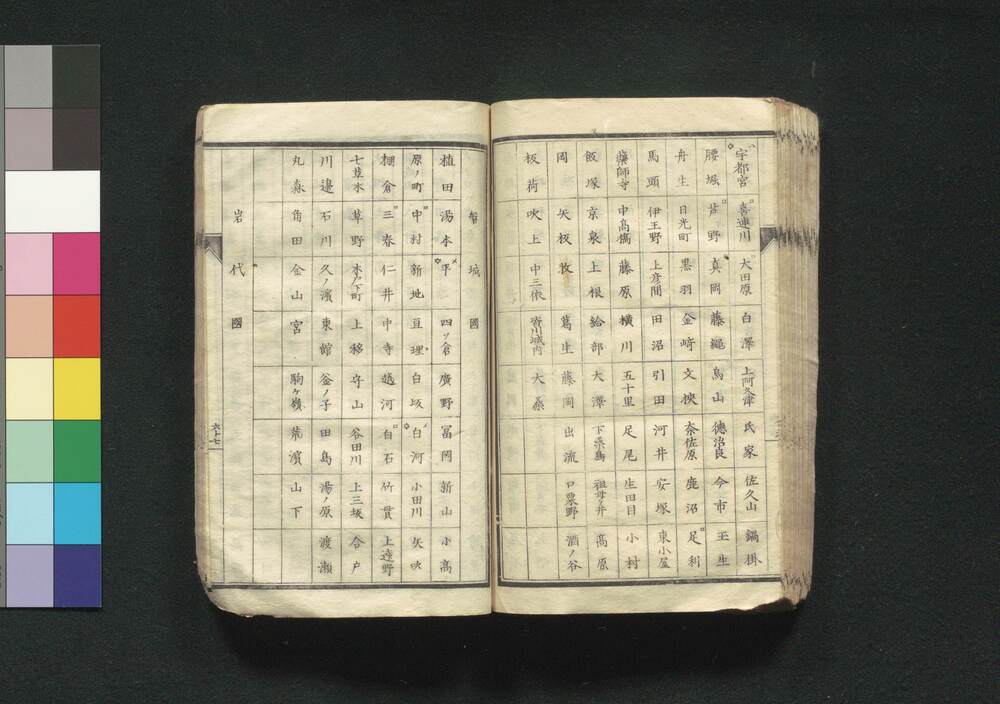 宇都宮 喜連川 大田原 白澤 上阿久津 氏家 佐久山 鍋掛
腰堀 芦野 真岡 藤縄 烏山 徳治良 今市 壬生
舟生 日光町 黒羽 金崎 文挾 奈佐原 鹿沼 足利
馬頭 伊王野 上彦間 田沼 引田 河井 安塚 東小屋
藥師寺 中髙橋 藤原 横川 五十里 足尾 生田目 小村
飯塚 京泉 上根 給部 大澤 下桑島 祖母ヶ井 髙原
岡 矢板 牧 葛生 藤岡 出流 口粟野 酒ノ谷
板荷 吹上 中三依 皆川城内 大桑
磐城國
植田 湯本 平 四ツ倉 廣野 冨岡 新山 小髙
原ノ町 中村 新地 亘理 白坂 白河 小田川 矢吹
棚倉 三春 仁井 中寺 越河 白石 竹貫 上遠野
七草木 草野 木戸下町 上移 守山 谷田川 上三坂 合戸
川邉 石川 久ノ濱 東舘 釜ノ子 田島 湯ノ原 渡瀬
丸森 角田 金山 宮 駒ヶ嶺 荒濱 山下
岩代國
六十七